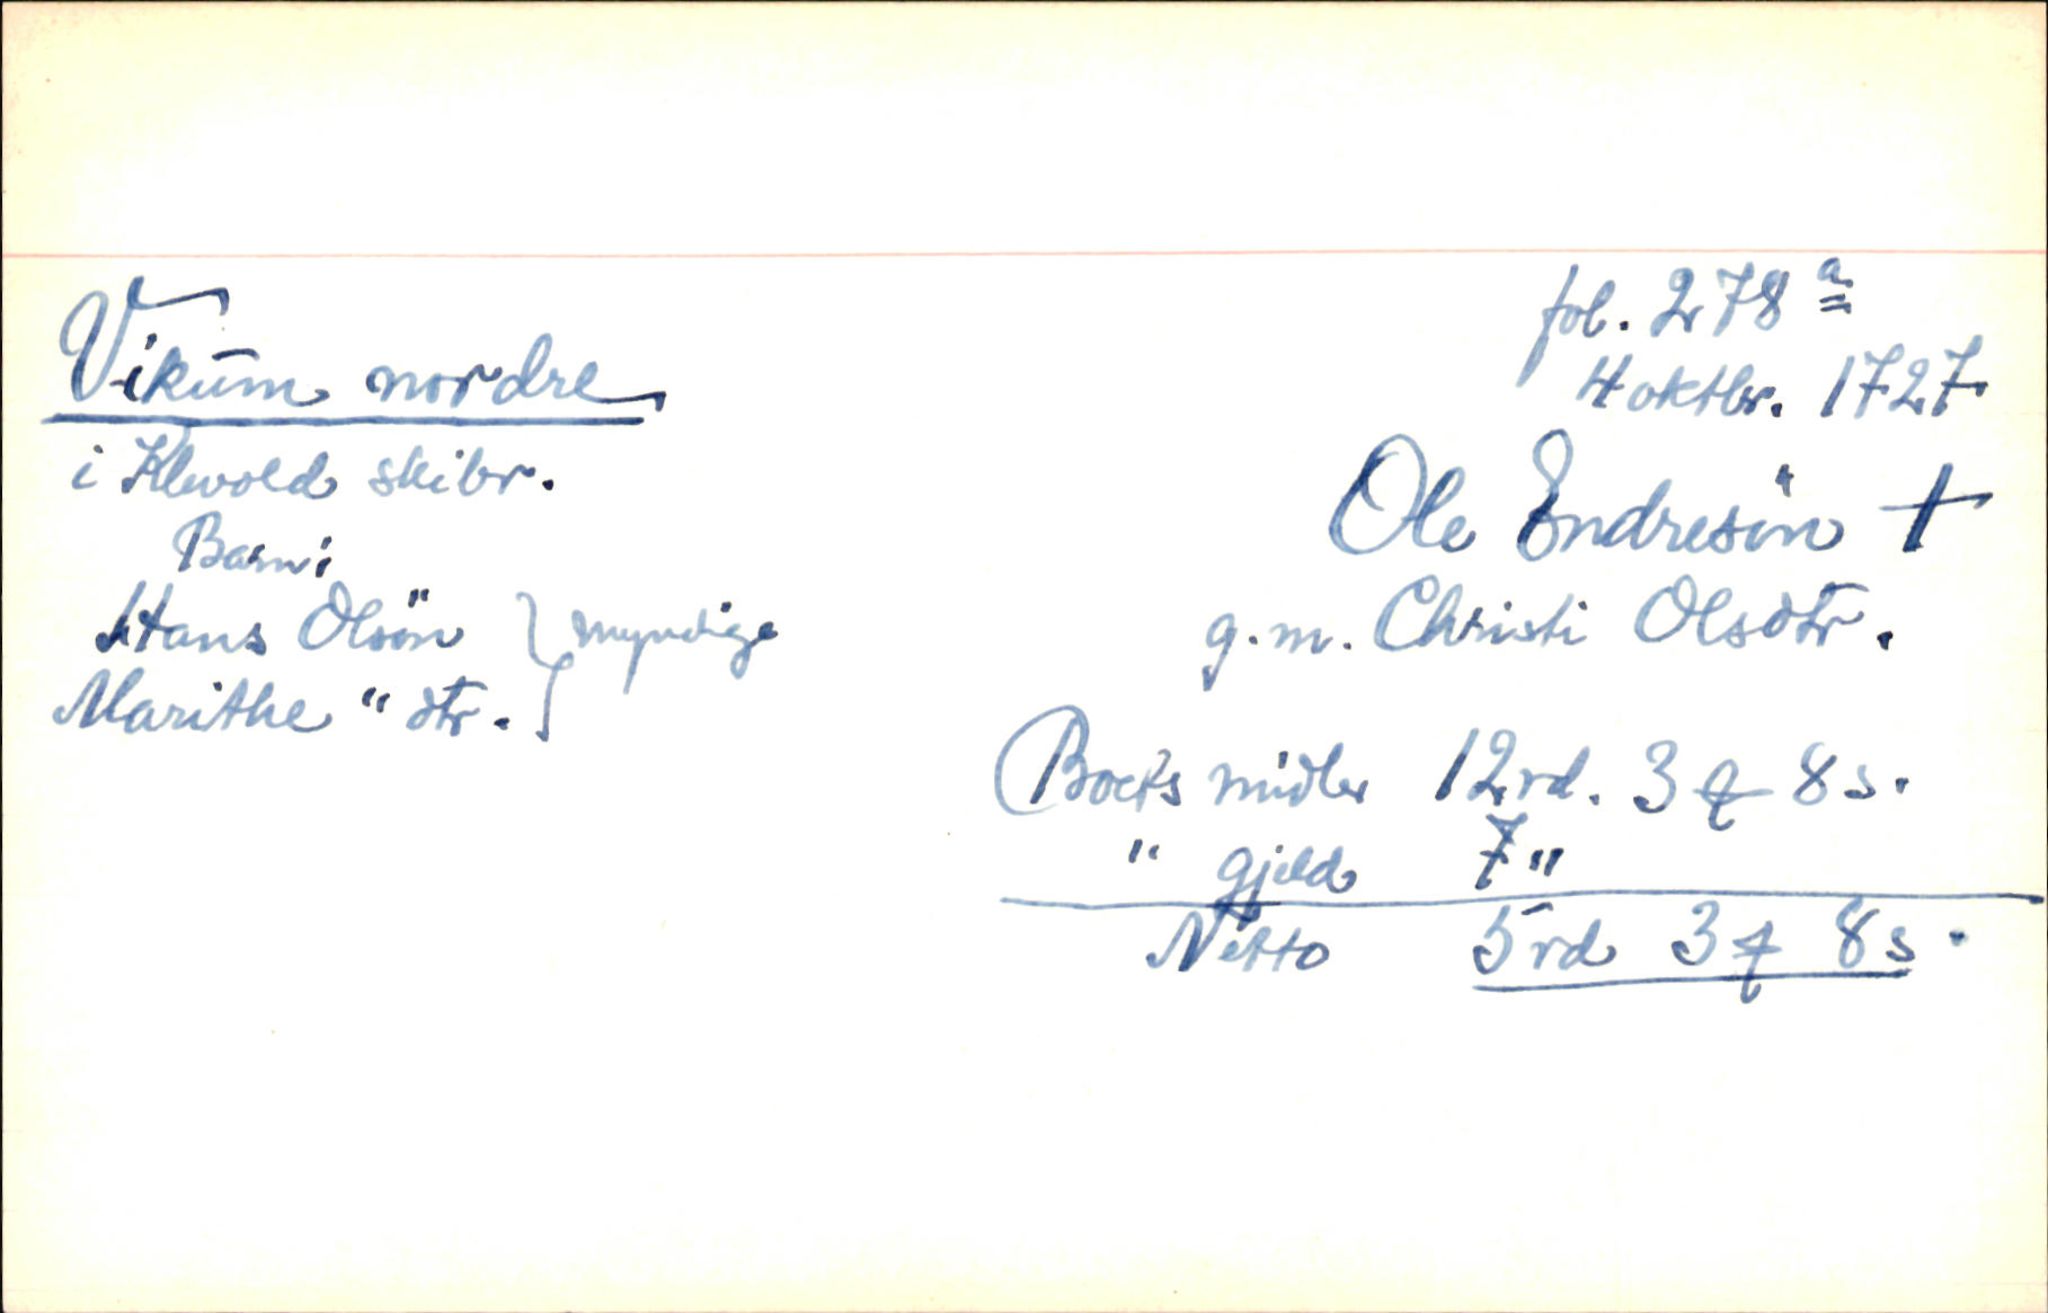 fol. 278 a
Vikum nordre
4 oktbr. 1727
i Klevold skibr.
Ole Endresön +
Barn:
Hans Olsön } myndige
g.m. Christi Olsdtr.
Marithe " dtr.
Boets midler 12 rd. 3 q 8 s.
" gjeld 7 "
Netto 5 rd 3 q 8 s.